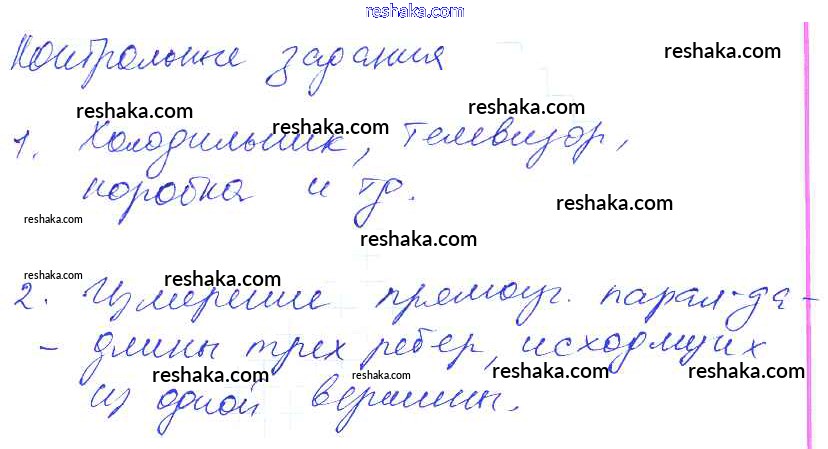 reshaka.com
Контрольные задания
reshaka.com
reshaka.com
reshaka.com
reshaka.com
1. Холодильник, телевизор,
коробка и тд.
reshaka.com
reshaka.com
reshaka.com
reshaka.com
reshaka.com
2. Измерение прямоуг. парал-да -
- длины трех ребер, исходящих
reshaka.com
reshaka.com
reshaka.com
reshaka.com
из одной вершины.